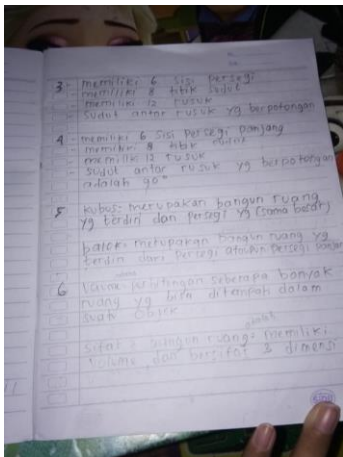 3 - memiliki 6 sisi persegi
- memiliki 8 titik sudut
- memiliki 12 rusuk
- sudut antar rusuk yg berpotongan
4 - memiliki 6 sisi persegi panjang
- memiliki 8 titik sudut
- memiliki 12 rusuk
- sudut antar rusuk yg berpotongan
adalah 90°
5 kubus: merupakan bangun ruang
yg terdiri dari persegi yg (sama besar)
balok: merupakan bangun ruang yg
terdiri dari persegi ataupun persegi panjang
6 perhitungan seberapa banyak
ruang yg bisa ditempati dalam
suatu objek
adalah
sifat 2 bangun ruang: memiliki
volume dan bersifat 3 dimensi